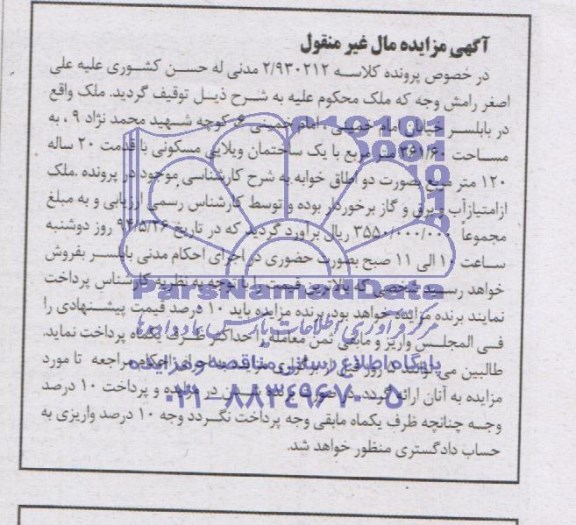 آگهی مزایده مال غیر منقول
در خصوص پرونده کلاسه ۲/۹۳۰۲۱۲ مدنی له حسن کشوری علیه علی
اصغر رامش وجه که ملک محکوم علیه به شرح ذیل توقیف گردید. ملک واقع
در بابلسر خیابان امام خمینی، امام خمینی کوچه شهید محمد نژاد ۹، به
مساحت متر مربع با یک ساختمان ویلایی مسکونی با قدمت ۲۰ ساله
۱۲۰ متر مربع بصورت دو اطاق خوابه به شرح کارشناسی موجود در پرونده .ملک
ازامتیازآب و برق و گاز برخوردار بوده و توسط کارشناس رسمی ارزیابی و به مبلغ
مجموعاً ۳۵۵۰/۰۰۰/۰۰۰ ریال برآورد گردید که در تاریخ ۹۴/۵/۲۶ روز دوشنبه
ساعت ۱۰ الی ۱۱ صبح بصورت حضوری در اجرای احکام مدنی بابلسر بفروش
خواهد رسید شخصی که بالاترین قیمت را با توجه به نظریه کارشناس پرداخت
نمایند برنده مزایده خواهد بود. برنده مزایده باید ۱۰ درصد قیمت پیشنهادی را
فی المجلس واریز و مابقی ثمن معامله را حداکثر ظرف یکماه پرداخت نماید.
طالبین می توانند ۵ روز قبل از برگزاری مزایده به اجرای احکام مراجعه تا مورد
مزایده به آنان ارائه گردد. در صورت مزایده و پرداخت ۱۰ درصد
وجه چنانچه ظرف یکماه مابقی وجه پرداخت نگردد وجه ۱۰ درصد واریزی به
حساب دادگستری منظور خواهد شد.
ParsNamadData
مرکز فرآوری اطلاعات پارس نماد داده ها
پایگاه اطلاع رسانی مناقصه و مزایده
۰۲۱-۸۸۳۴۹۶۷۰-۵